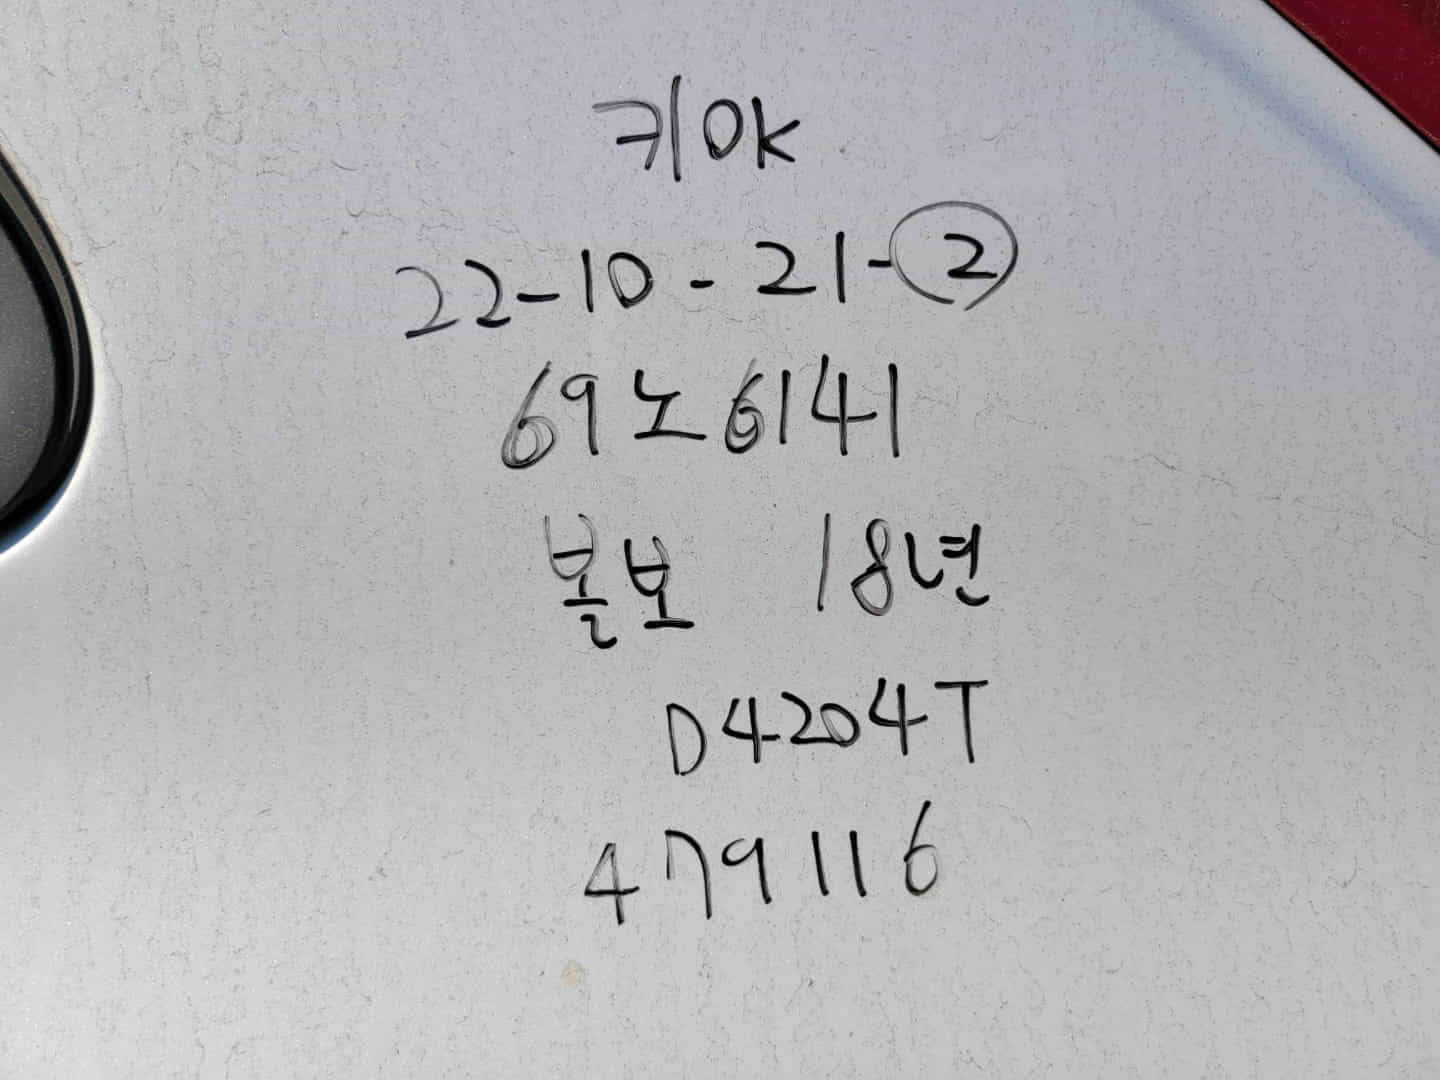 키OK
22-10-21-②
69노6141
볼보 18년
D4204T
479116